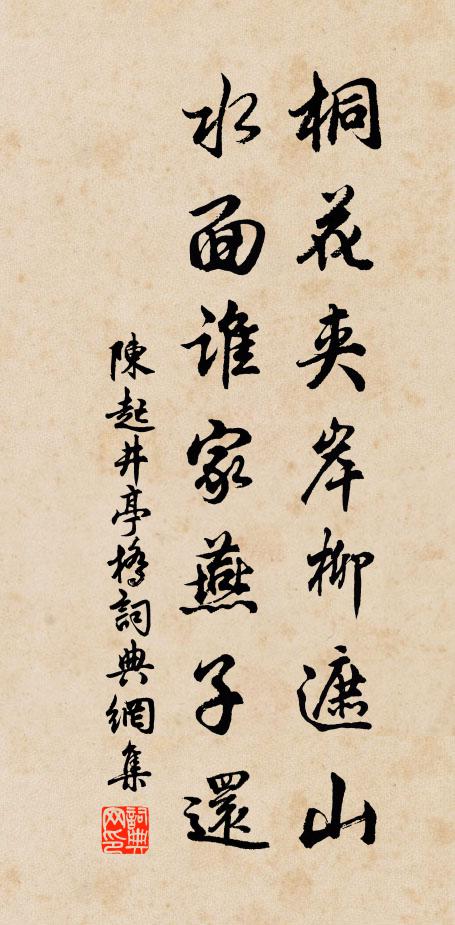 桐花夹岸柳遮山
水面谁家燕子還
陳起井亭橋詞典網集
詞典网印